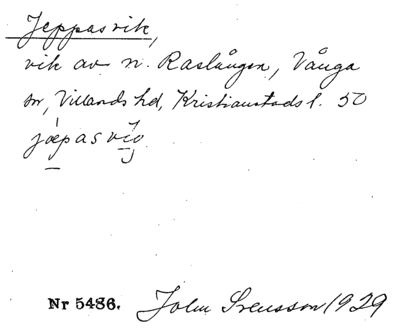 Jeppasvik,
vik av n. Raslången, Vånga
sn, Villands hd, Kristianstads l. 50
jæpasvig
Nr 5486. John Svensson 1929